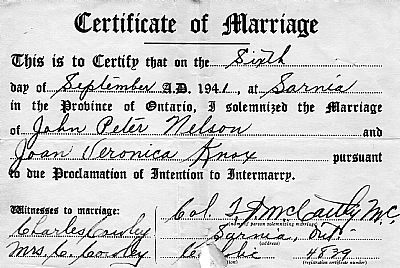 Certificate of Marriage
This is to Certify that on the Sixth
day of September A.D. 1941, at Sarnia
in the Province of Ontario, I solemnized the Marriage
of John Peter Nelson and
Joan Veronica Knox pursuant
to due Proclamation of Intention to Intermarry.
Witnesses to marriage: Col.
person solemnizing marriage)
Charles Sarnia, Ont.
(address)
Mrs. C. 4839
(registration certificate number)